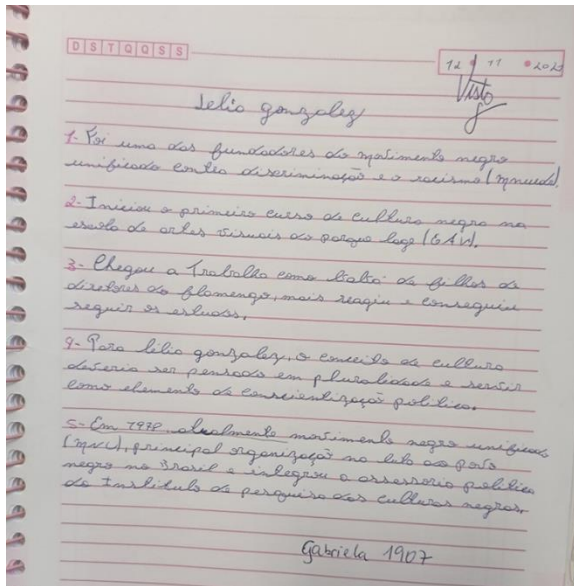 D S T Q Q S S
12 11 2021
Visto
Lelia gonzalez
1- Foi uma das fundadores do movimento negro
unificado contra discriminação e o racismo (mnucdr).
2- Iniciou o primeiro curso de cultura negra na
escola de artes visuais do parque lage (EAV).
3- Chegou a Trabalha como babá de filhos de
diretores do flamengo, mais reagiu e conseguiu
seguir os estudos.
4- Para lélia gonzalez, o conceito de cultura
deveria ser pensado em pluralidade e servir
como elemento de conscientização política.
5- Em 1978, atualmente movimento negro unificado
principal organização na luta do povo
negro no Brasil e integrou a assessoria política
do Instituto de pesquisa das culturas negras.
Gabriela 1907